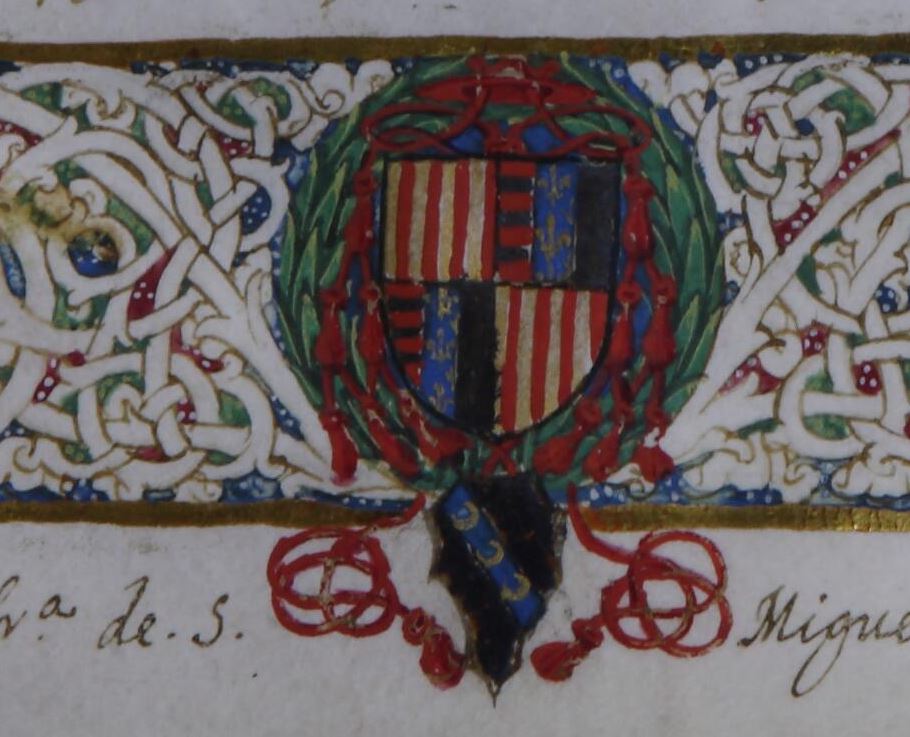 de. S. Migue